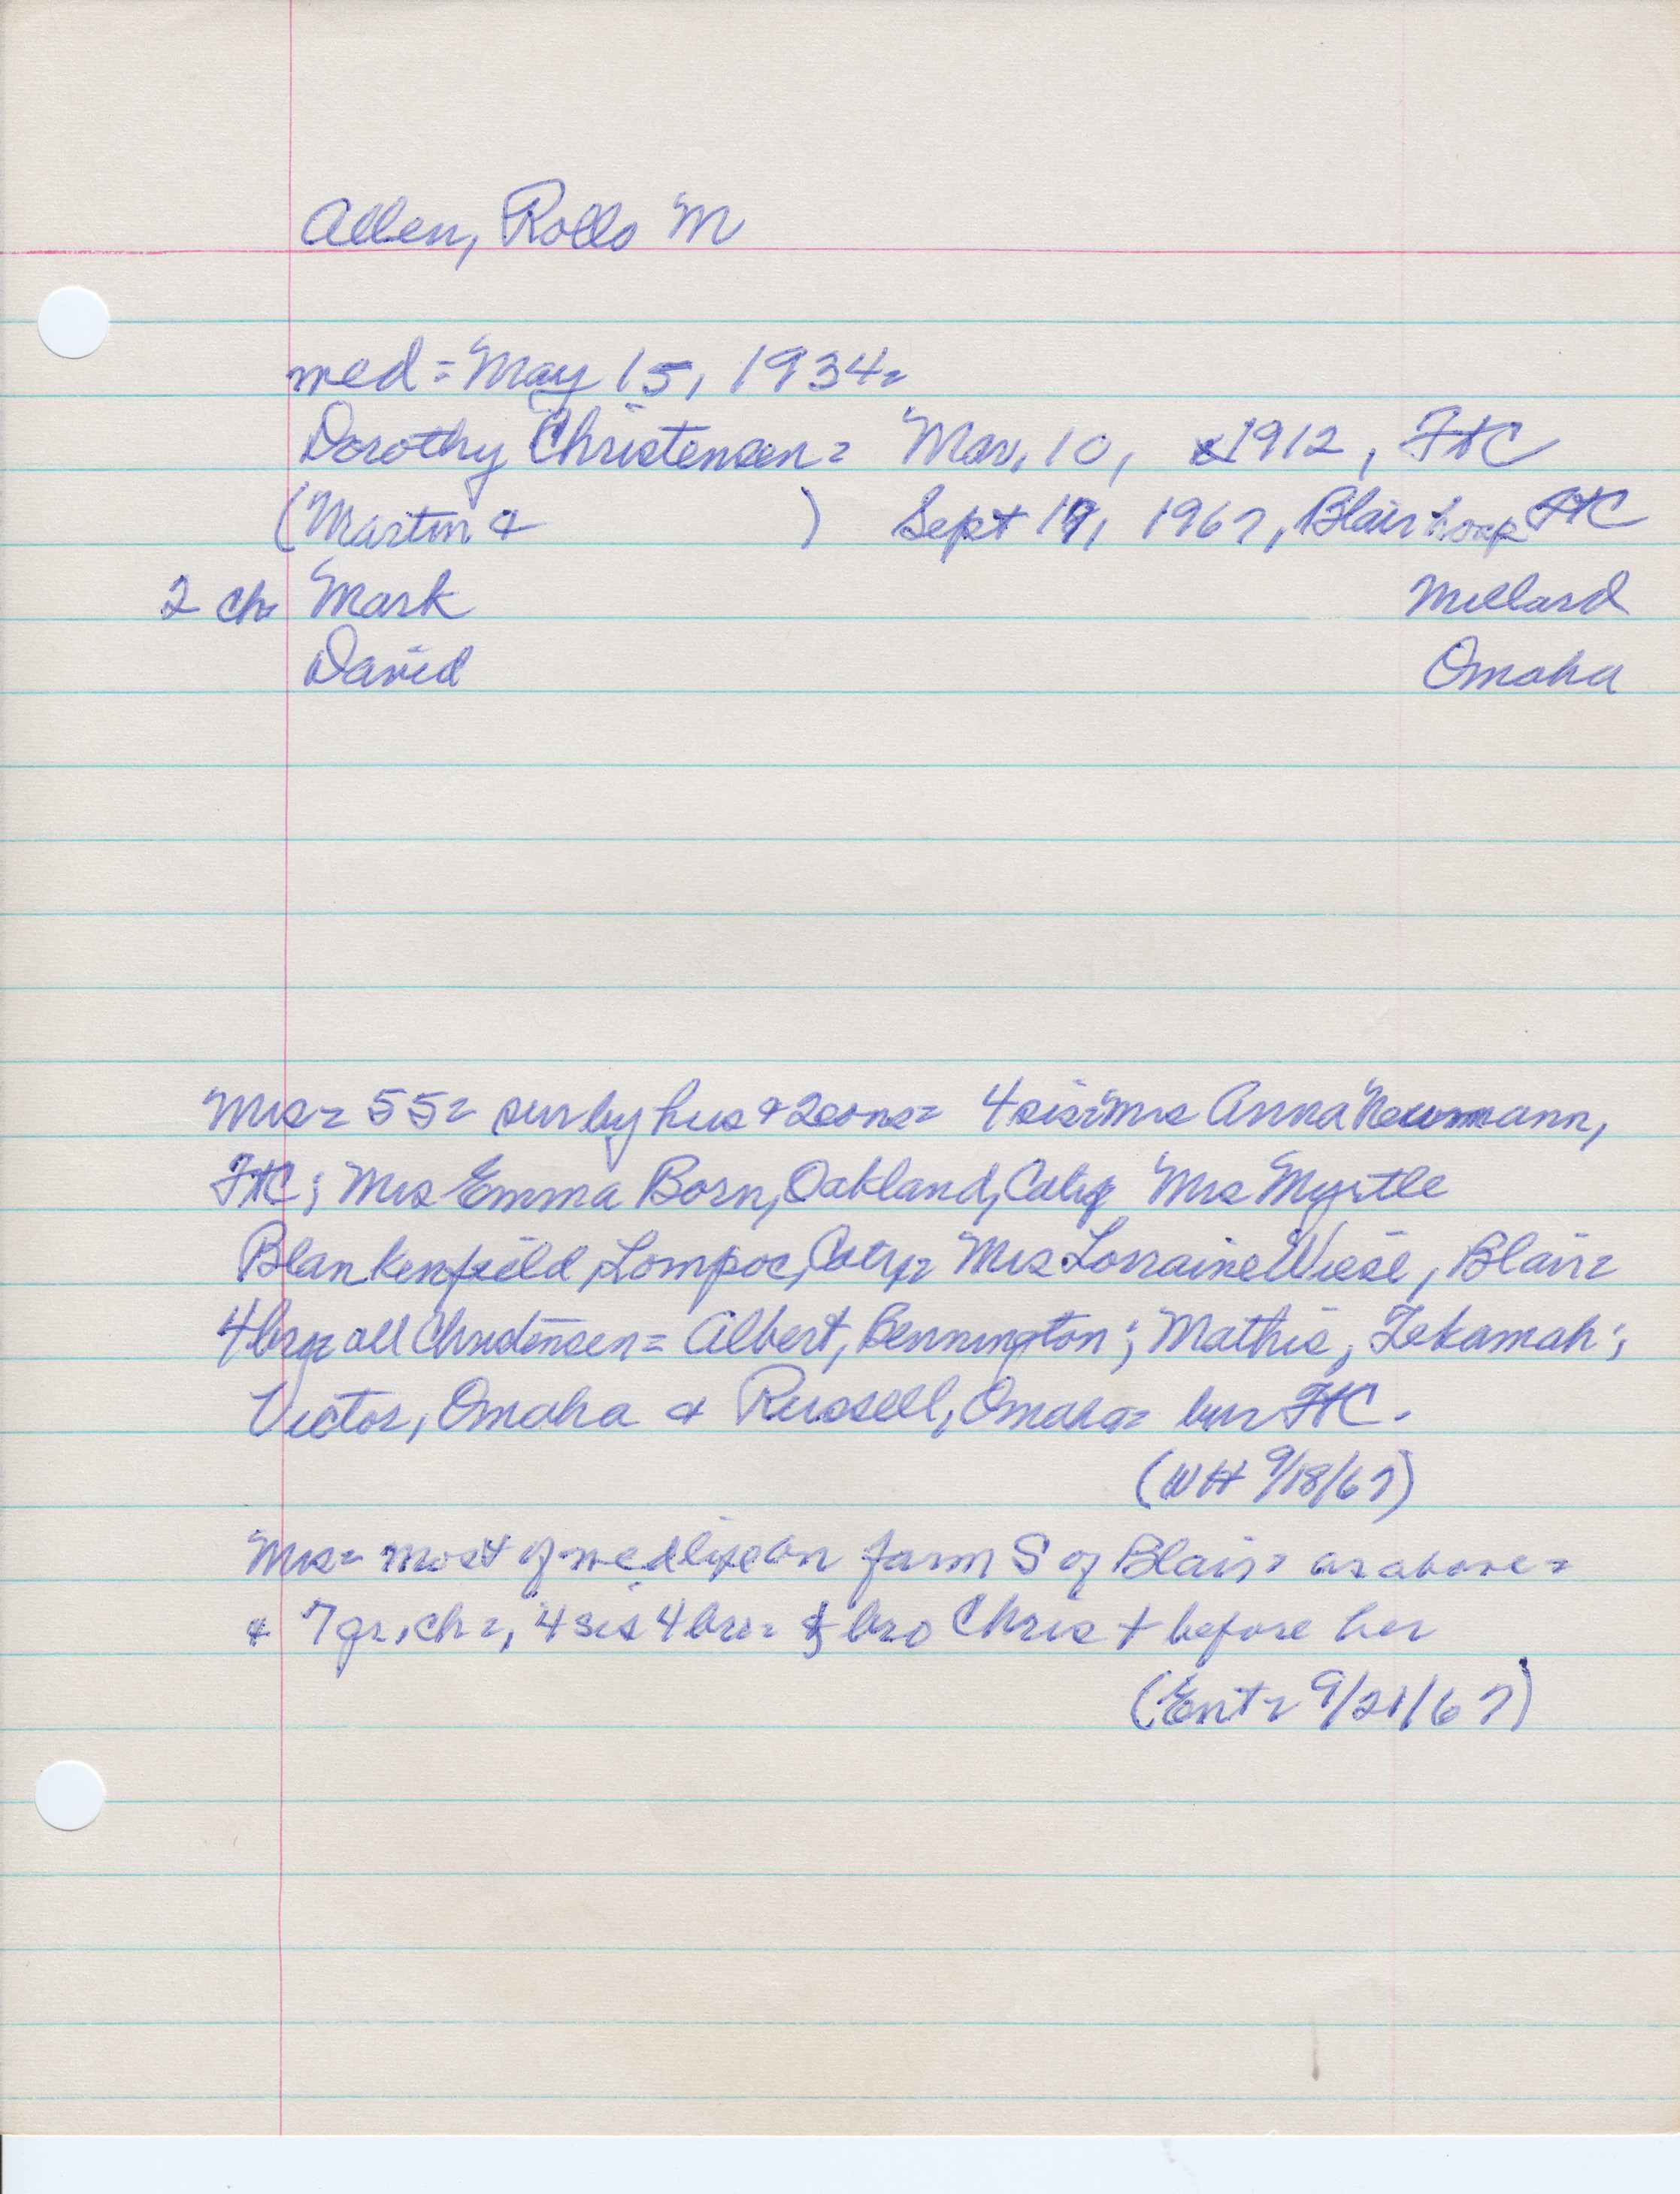 Allen, Rollo M
wed = May 15, 1934 =
Dorothy Christensen = Mar, 10, 1912, FtC
(Martin & ) Sept 17, 1967, Blair hosp FtC
2 ch Mark Millard
David Omaha
Mrs = 55 = sur by hus & 2 sons = 4 sis = Mrs Anna Neumann,
FtC; Mrs Emma Born, Oakland, Calif Mrs Myrtle
Blankenfield, Lompoc, Calif = Mrs Lorraine Wiese, Blair =
4 bro = all Christensen = Albert, Bennington; Mathis, Tekamah;
Victor, Omaha & Russell, Omaha = bur FtC.
(WH 9/18/67)
Mrs = most of wed life on farm S of Blair = as above =
& 7 gr, ch =, 4 sis 4 bro = bro Chris + before her
(Ent = 9/21/67)